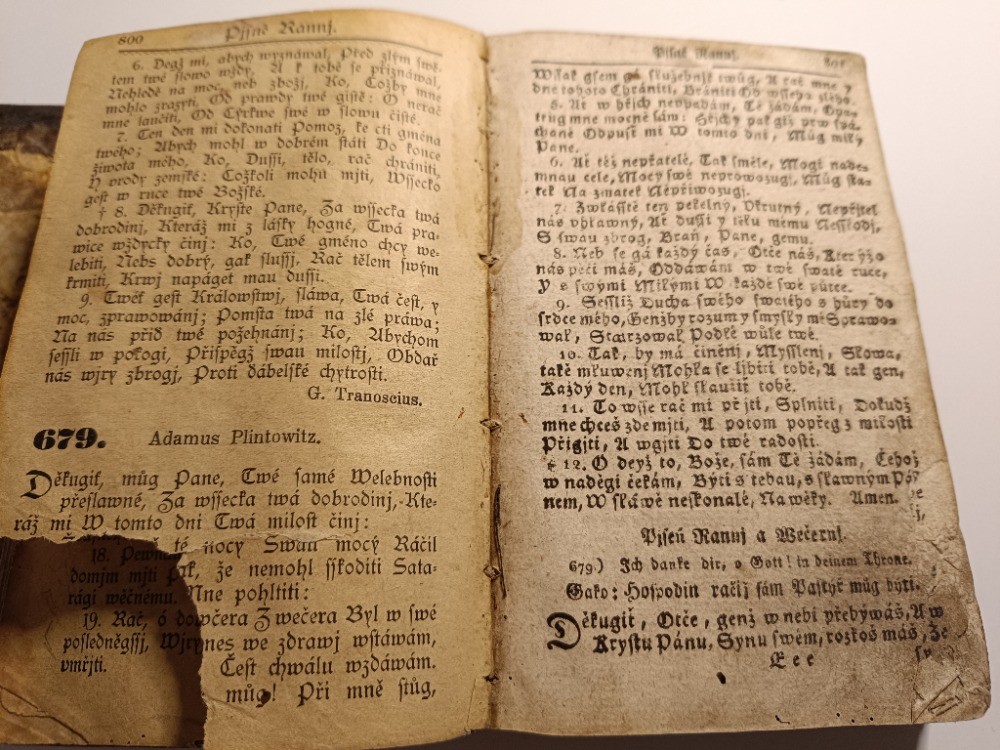 800 Pjsně Rannj.
6. Degž mi, abych wyznáwal, Před zlým swě-
tem twé slowo wždy, A k tobě se přiznáwal,
Nehledě na moc, neb zboži, Ko, Cožby mne
mohlo zrazyti, Od prawdy twé gisté: O nerač
mne laučiti, Od Cyrkwe swé w slowu čisté.
7. Ten den mi dokonati Pomoz, ke cti gména
twého; Abych mohl w dobrém státi Do konce
života mého, Ko, Dussi, tělo, rač chrániti,
Y vrody zemské: Cožkoli mohu mjti, Wssecko
gest w ruce twé Božské.
† 8. Děkugiť, Kryste Pane, Za wssecka twá
dobrodinj, Kteráž mi z lásky hogné, Twá pra-
wice wždycky činj: Ko, Twé gméno chcy we-
lebiti, Nebs dobrý, gak slussj, Rač tělem swým
krmiti, Krwj napáget mau dussi.
9. Twéť gest Králowstwj, sláwa, Twá čest, y
moc, zprawowánj; Pomsta twá na zlé práwa;
Na nás přid twé požehnánj; Ko, Abychom
sessli w pokogi, Přispěgž swau milostj, Obdař
nás wjry zbrogj, Proti ďábelské chytrosti.
G. Tranoscius.
679. Adamus Plintowitz.
Děkugiť, můg Pane, Twé samé Welebnosti
přeslawné, Za wssecka twá dobrodinj, Kte-
ráž mi W tomto dni Twá milost činj:
té nocy Swau mocý Ráčil
18. Pewně že nemohl sskoditi Sata-
domjm mjti
rági wěčnému. Mne pohltiti:
19. Rač, ó Zwečera Byl w swé
posledněgssj, wstáwám,
vmřjti. Čest chwálu wzdáwám.
můg! Při mně stůg,
Pjsně Rannj. 801
Wssak gsem gá služebnjk twůg, A rač mne y
dne tohoto Chrániti, Brániti Od wsseho zlého.
5. Ať w hřjch neupadám, Tě žádám,
mocně sám: Hřjchy pak giž prw spá-
chané Odpusť mi W tomto dni, Můg milý
Pane.
6. Ať též nepřátelé, Tak směle, Mogi nade-
mnau cele, Mocy swé neprowozugj, Můg sta-
tek Na zmatek Nepřiwozugj.
7. Zwlásstě ten pekelný, Vkrutný, Nepřjtel
nás vhlawný, Ať dussi y tělu mému Nesskodj,
S swau zbrog, Braň, Pane, gemu.
8. Neb se gá každý čas, Otče náš, Kterýžo
nás péči máš, Oddáwám w twé swaté ruce,
Y s swými Milými W každé swé půtce.
9. Sessliž Ducha swého swatého s hůry do
srdce mého, Genžby rozumy smysly mé Sprawo-
wal, Stwrzowal Podlé wůle twé.
10. Tak, by má činěnj, Mysslenj, Slowa,
také mluwenj Mohla se ljbiti tobě, A tak gen,
Každý den, Mohl slaužiť tobě.
11. To wsse rač mi přjti, Splniti, Dokudž
mne chceš zde mjti, A potom popřeg z milosti
Přigjti, A wgjti Do twé radosti.
† 12. O deyž to, Bože, sám Tě žádám, Čehož
w naděgi čekám, Býti s tebau, s slawným Pá-
nem, W sláwě neskonalé, Na wěky. Amen.
Pjseň Rannj a Wečernj.
679.) Ich danke dir, o Gott! in deinem Throne.
Gako: Hospodin ráčiž sám Pastýř můg býti.
Děkugiť, Otče, genž w nebi přebýwáš, A w
Krystu Pánu, Synu swém, rozkoš máš, Že
Eee